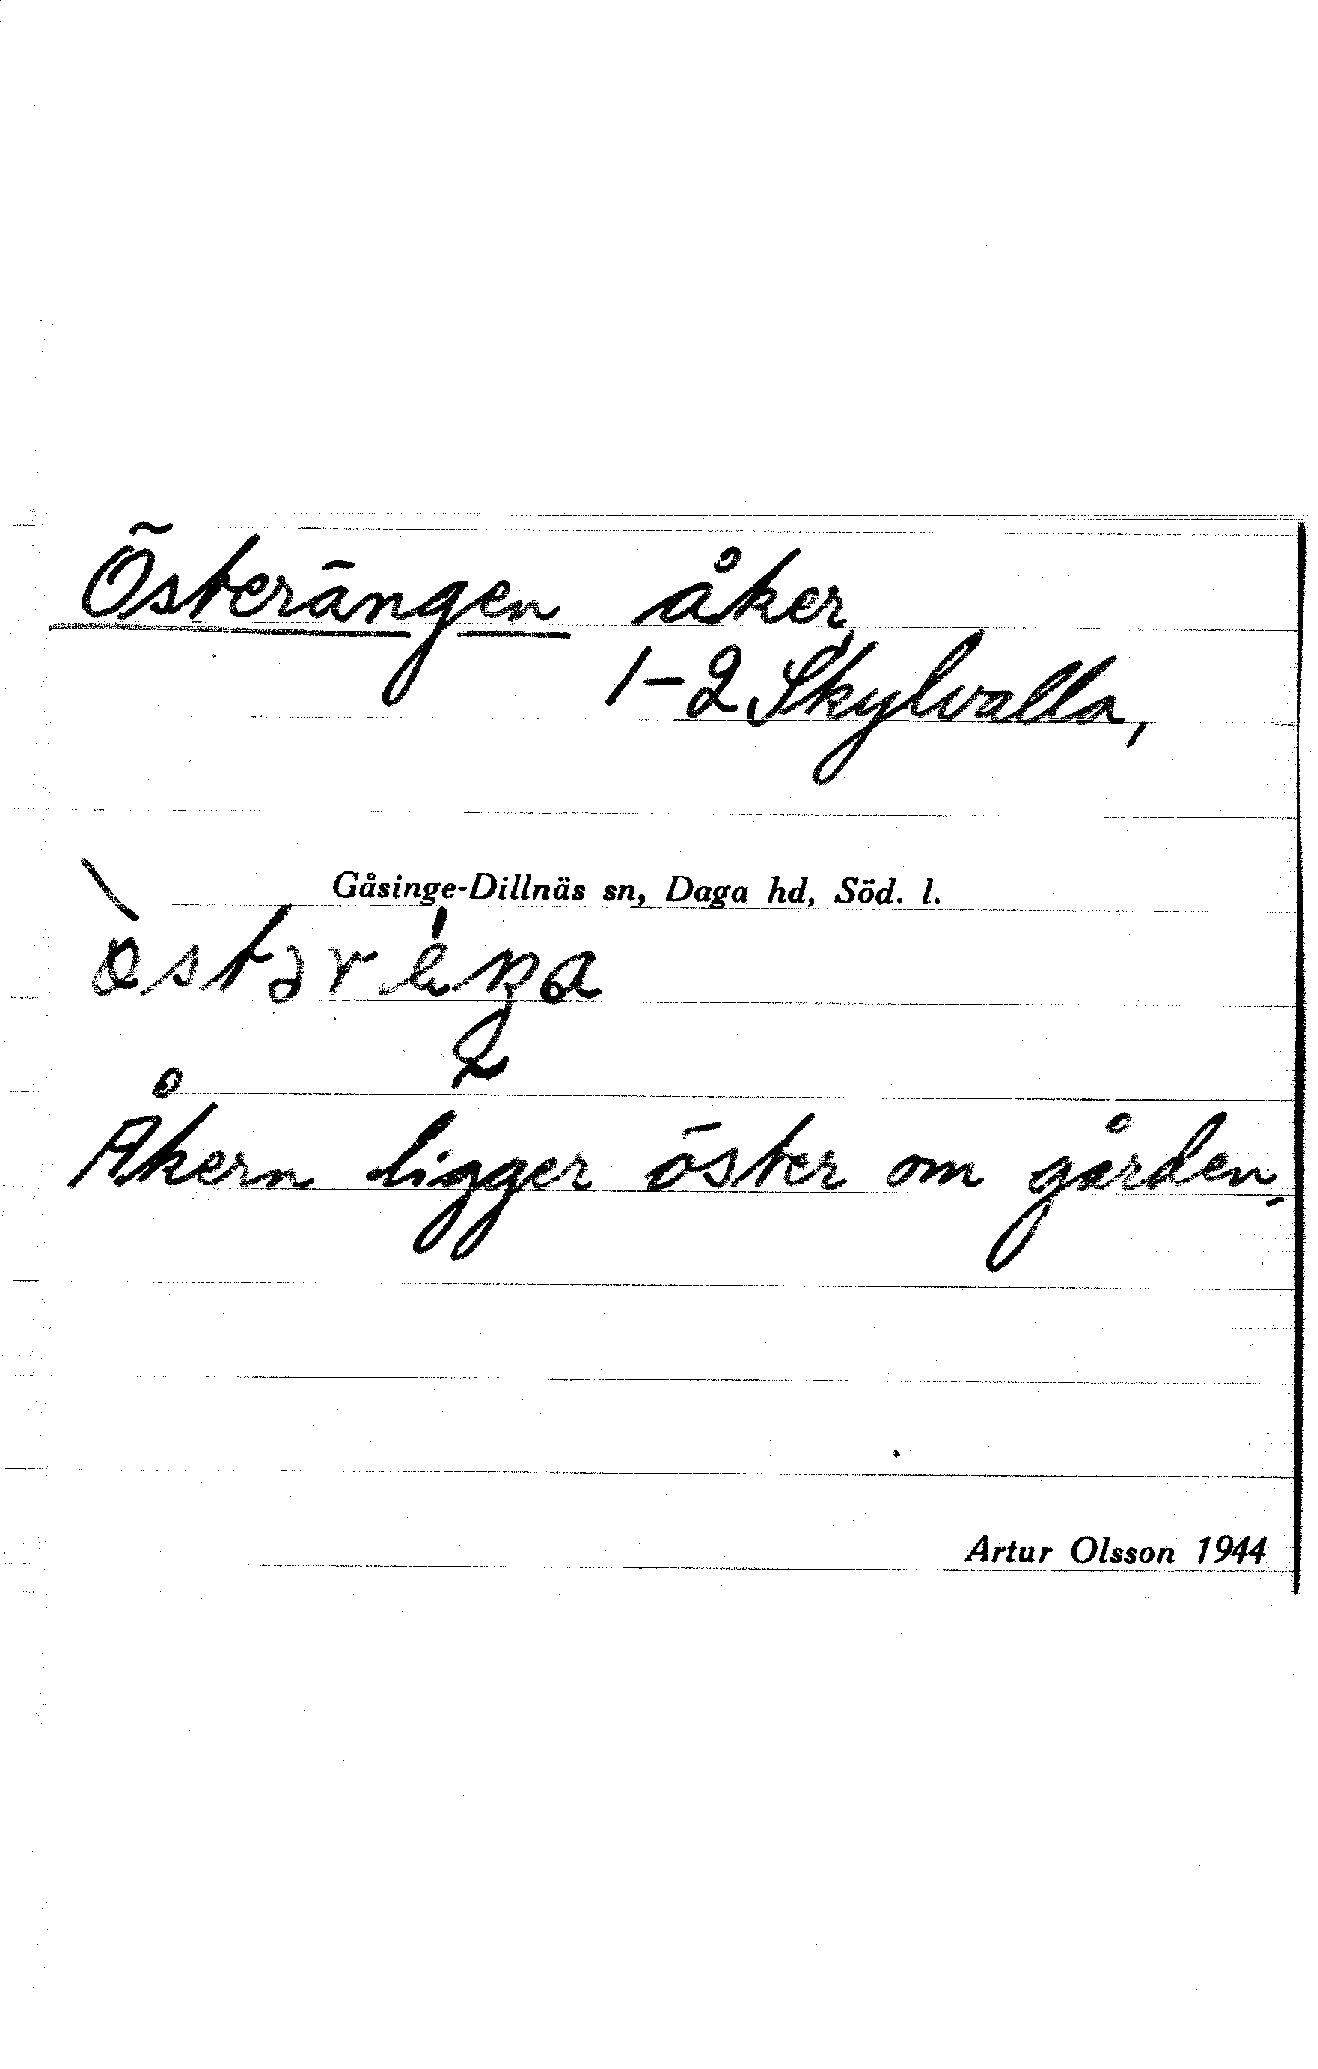 Österängen åker,
1-2 Skylvalla,
Gåsinge-Dillnäs sn, Daga hd, Söd. l.
Åkern ligger öster om gården.
Artur Olsson 1944